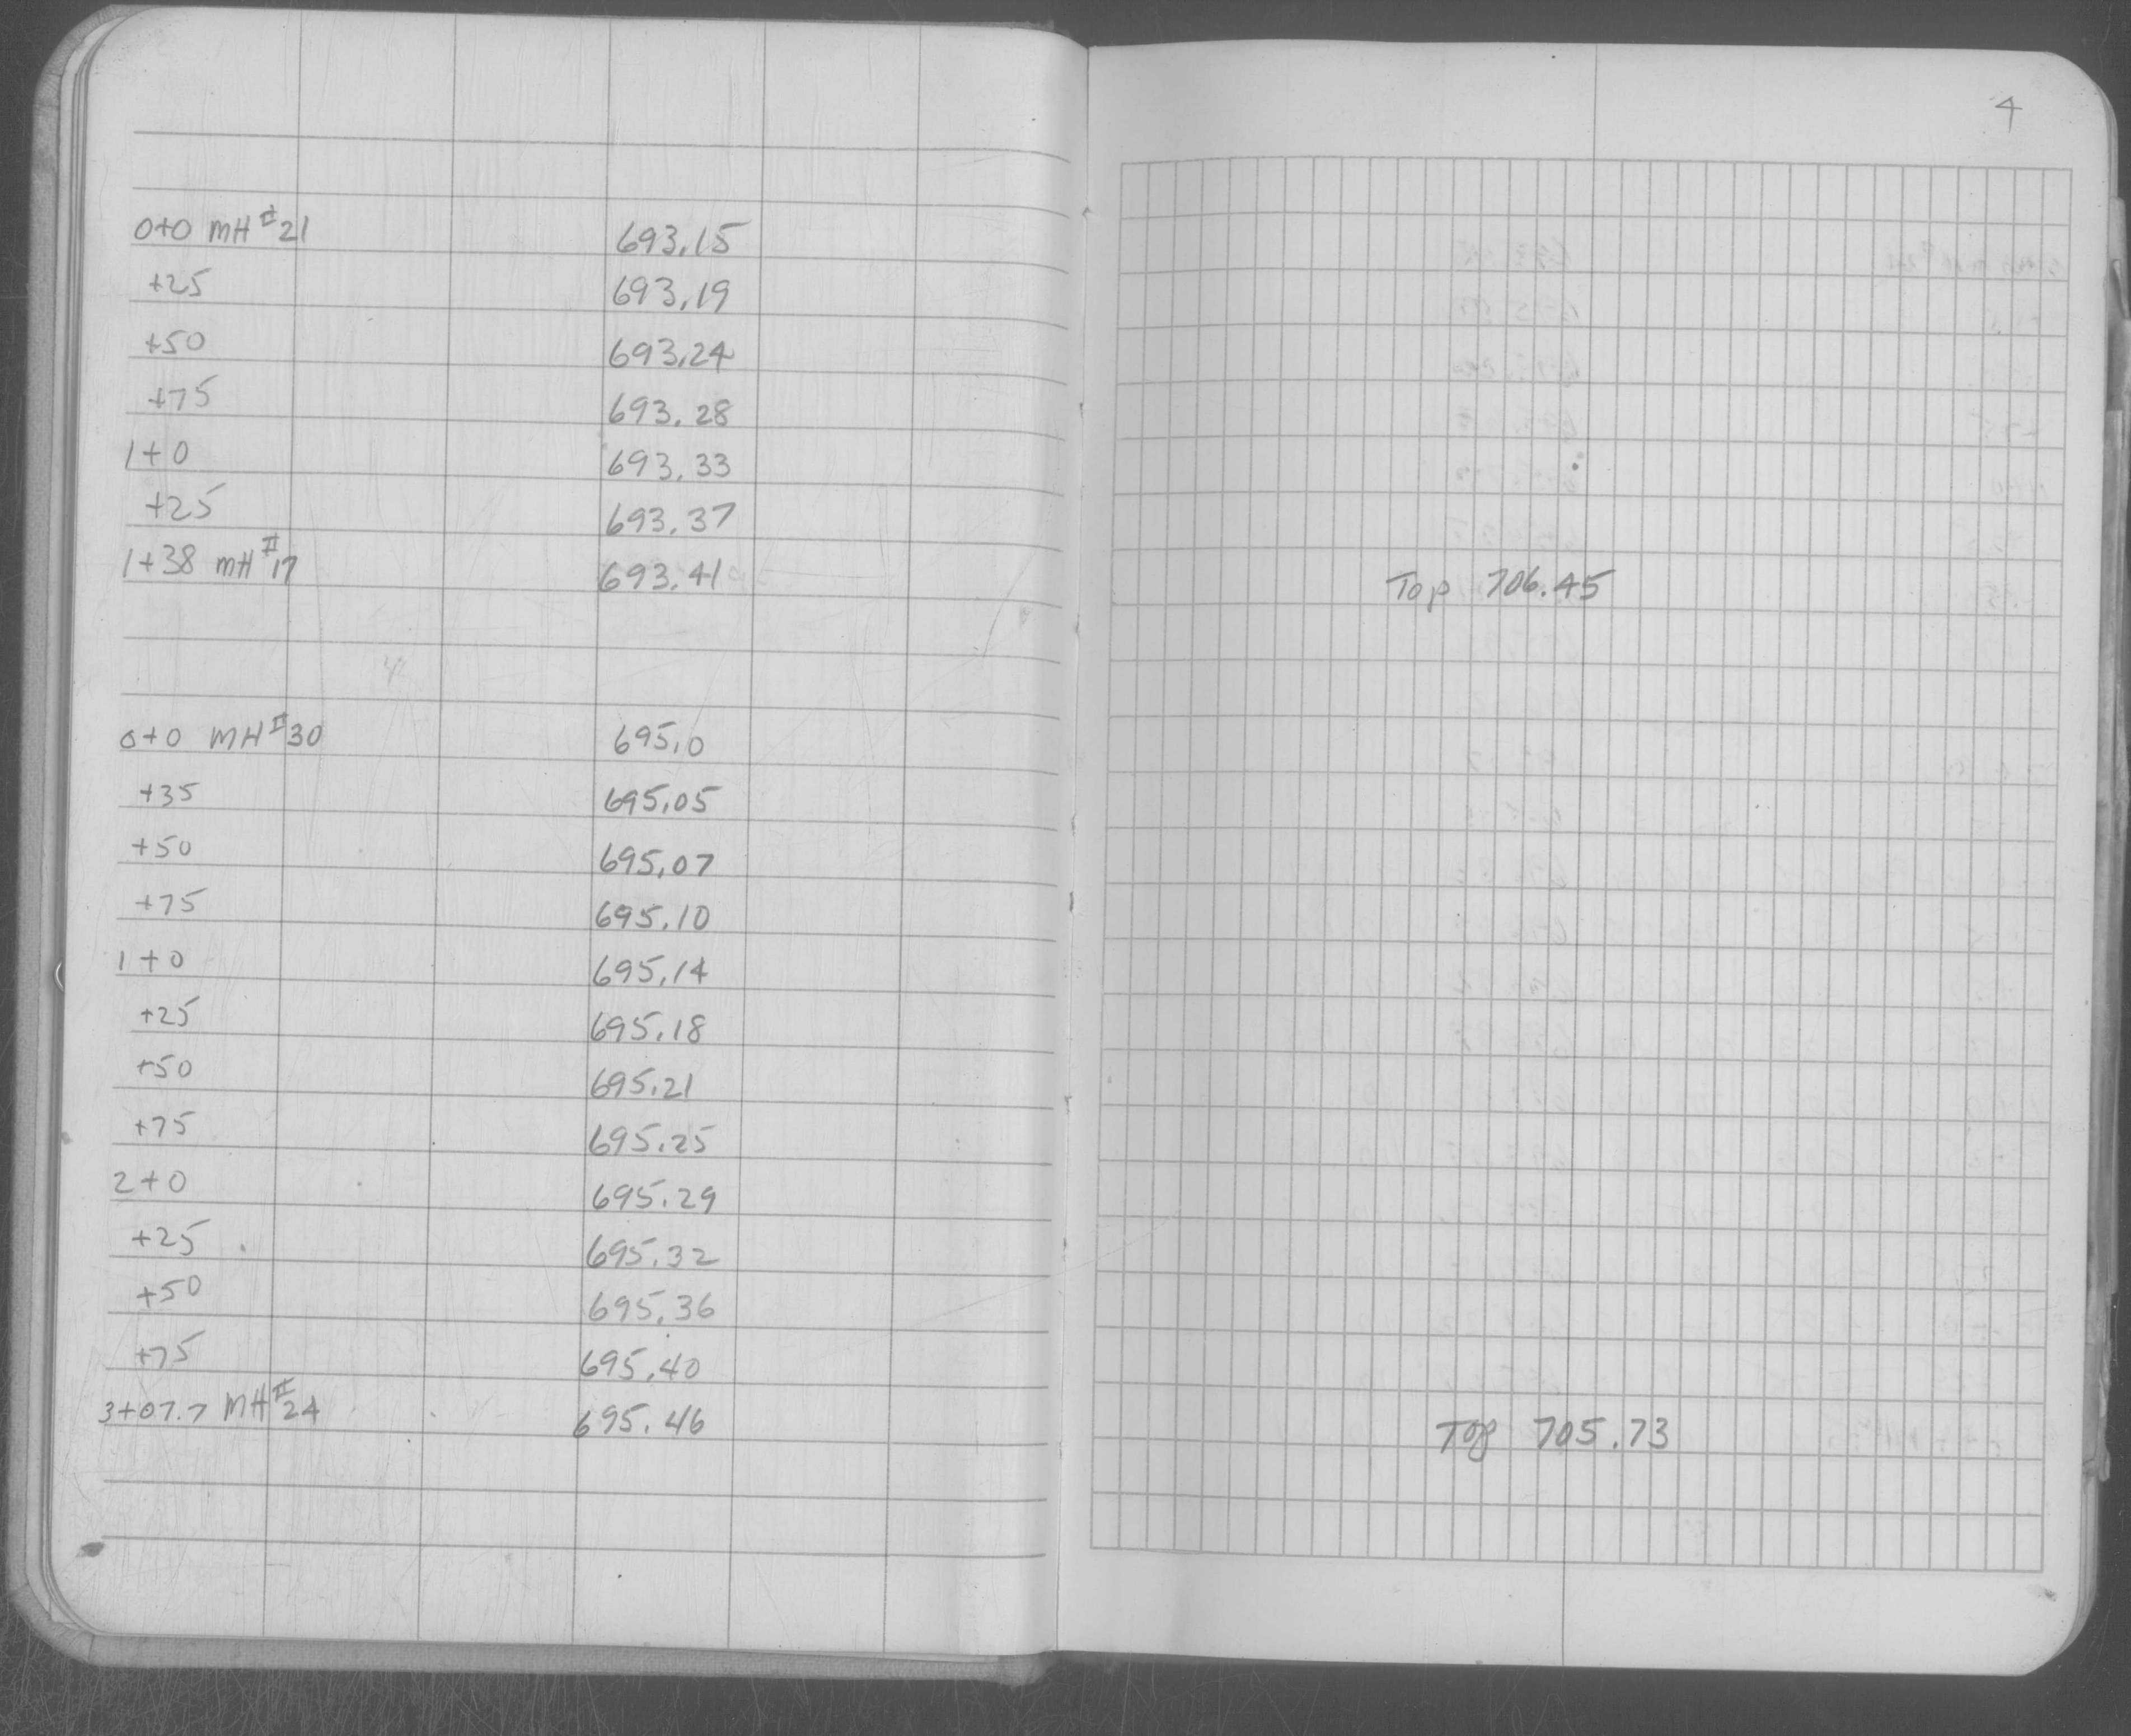 4
0+0 MH #21 693.15
+25 693.19
+50 693.24
+75 693.28
1+0 693.33
+25 693.37
1+38 MH #17 693.41 Top 706.45
0+0 MH #30 695.0
+35 695.05
+50 695.07
+75 695.10
1+0 695.14
+25 695.18
+50 695.21
+75 695.25
2+0 695.29
+25 695.32
+50 695.36
+75 695.40
3+07.7 MH #24 695.46 Top 705.73